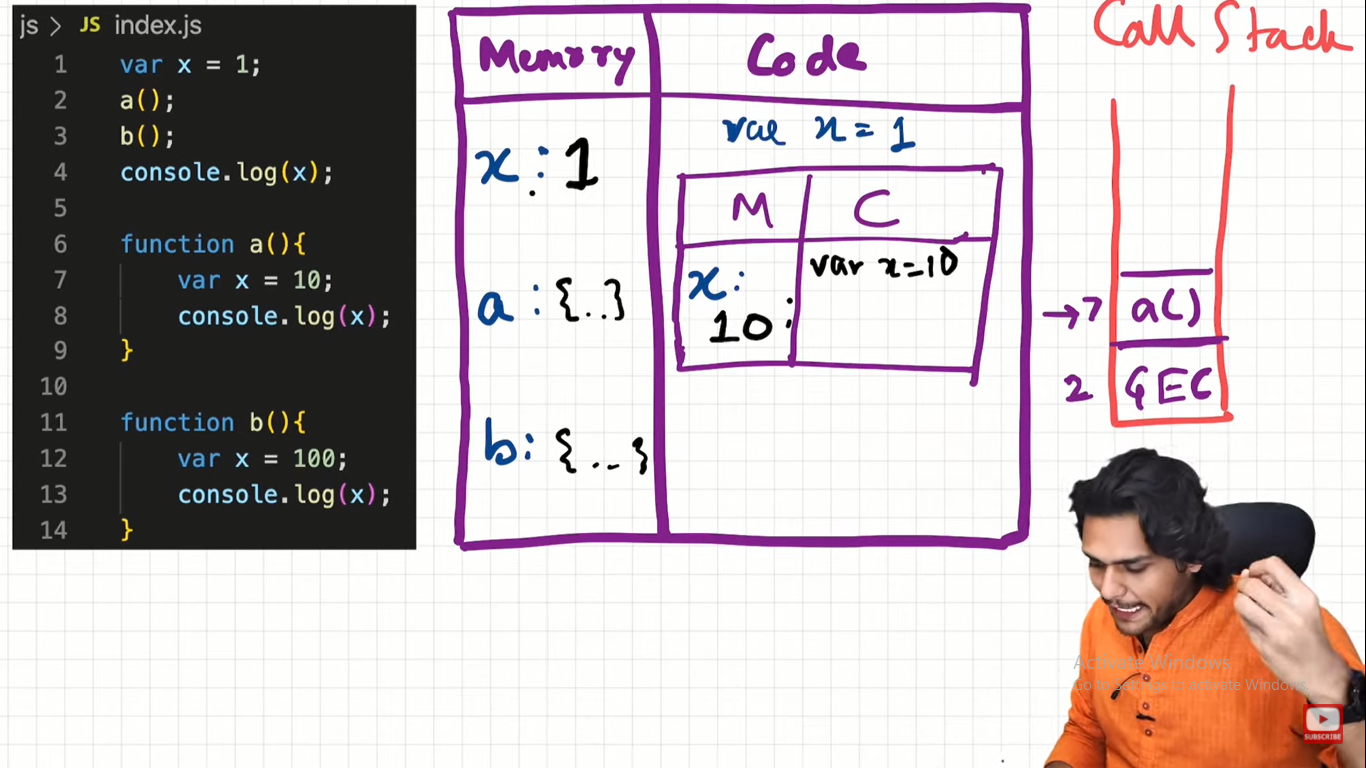 js > JS index.js
1 var x = 1;
2 a();
3 b();
4 console.log(x);
5
6 function a(){
7 var x = 10;
8 console.log(x);
9 }
10
11 function b(){
12 var x = 100;
13 console.log(x);
14 }
Memory
Code
x : 1
a : {..}
b : {...}
var x = 1
M
C
x :
10
var x=10
Call Stack
→7
a()
2
GEC
Activate Windows
Go to Settings to activate Windows.
SUBSCRIBE